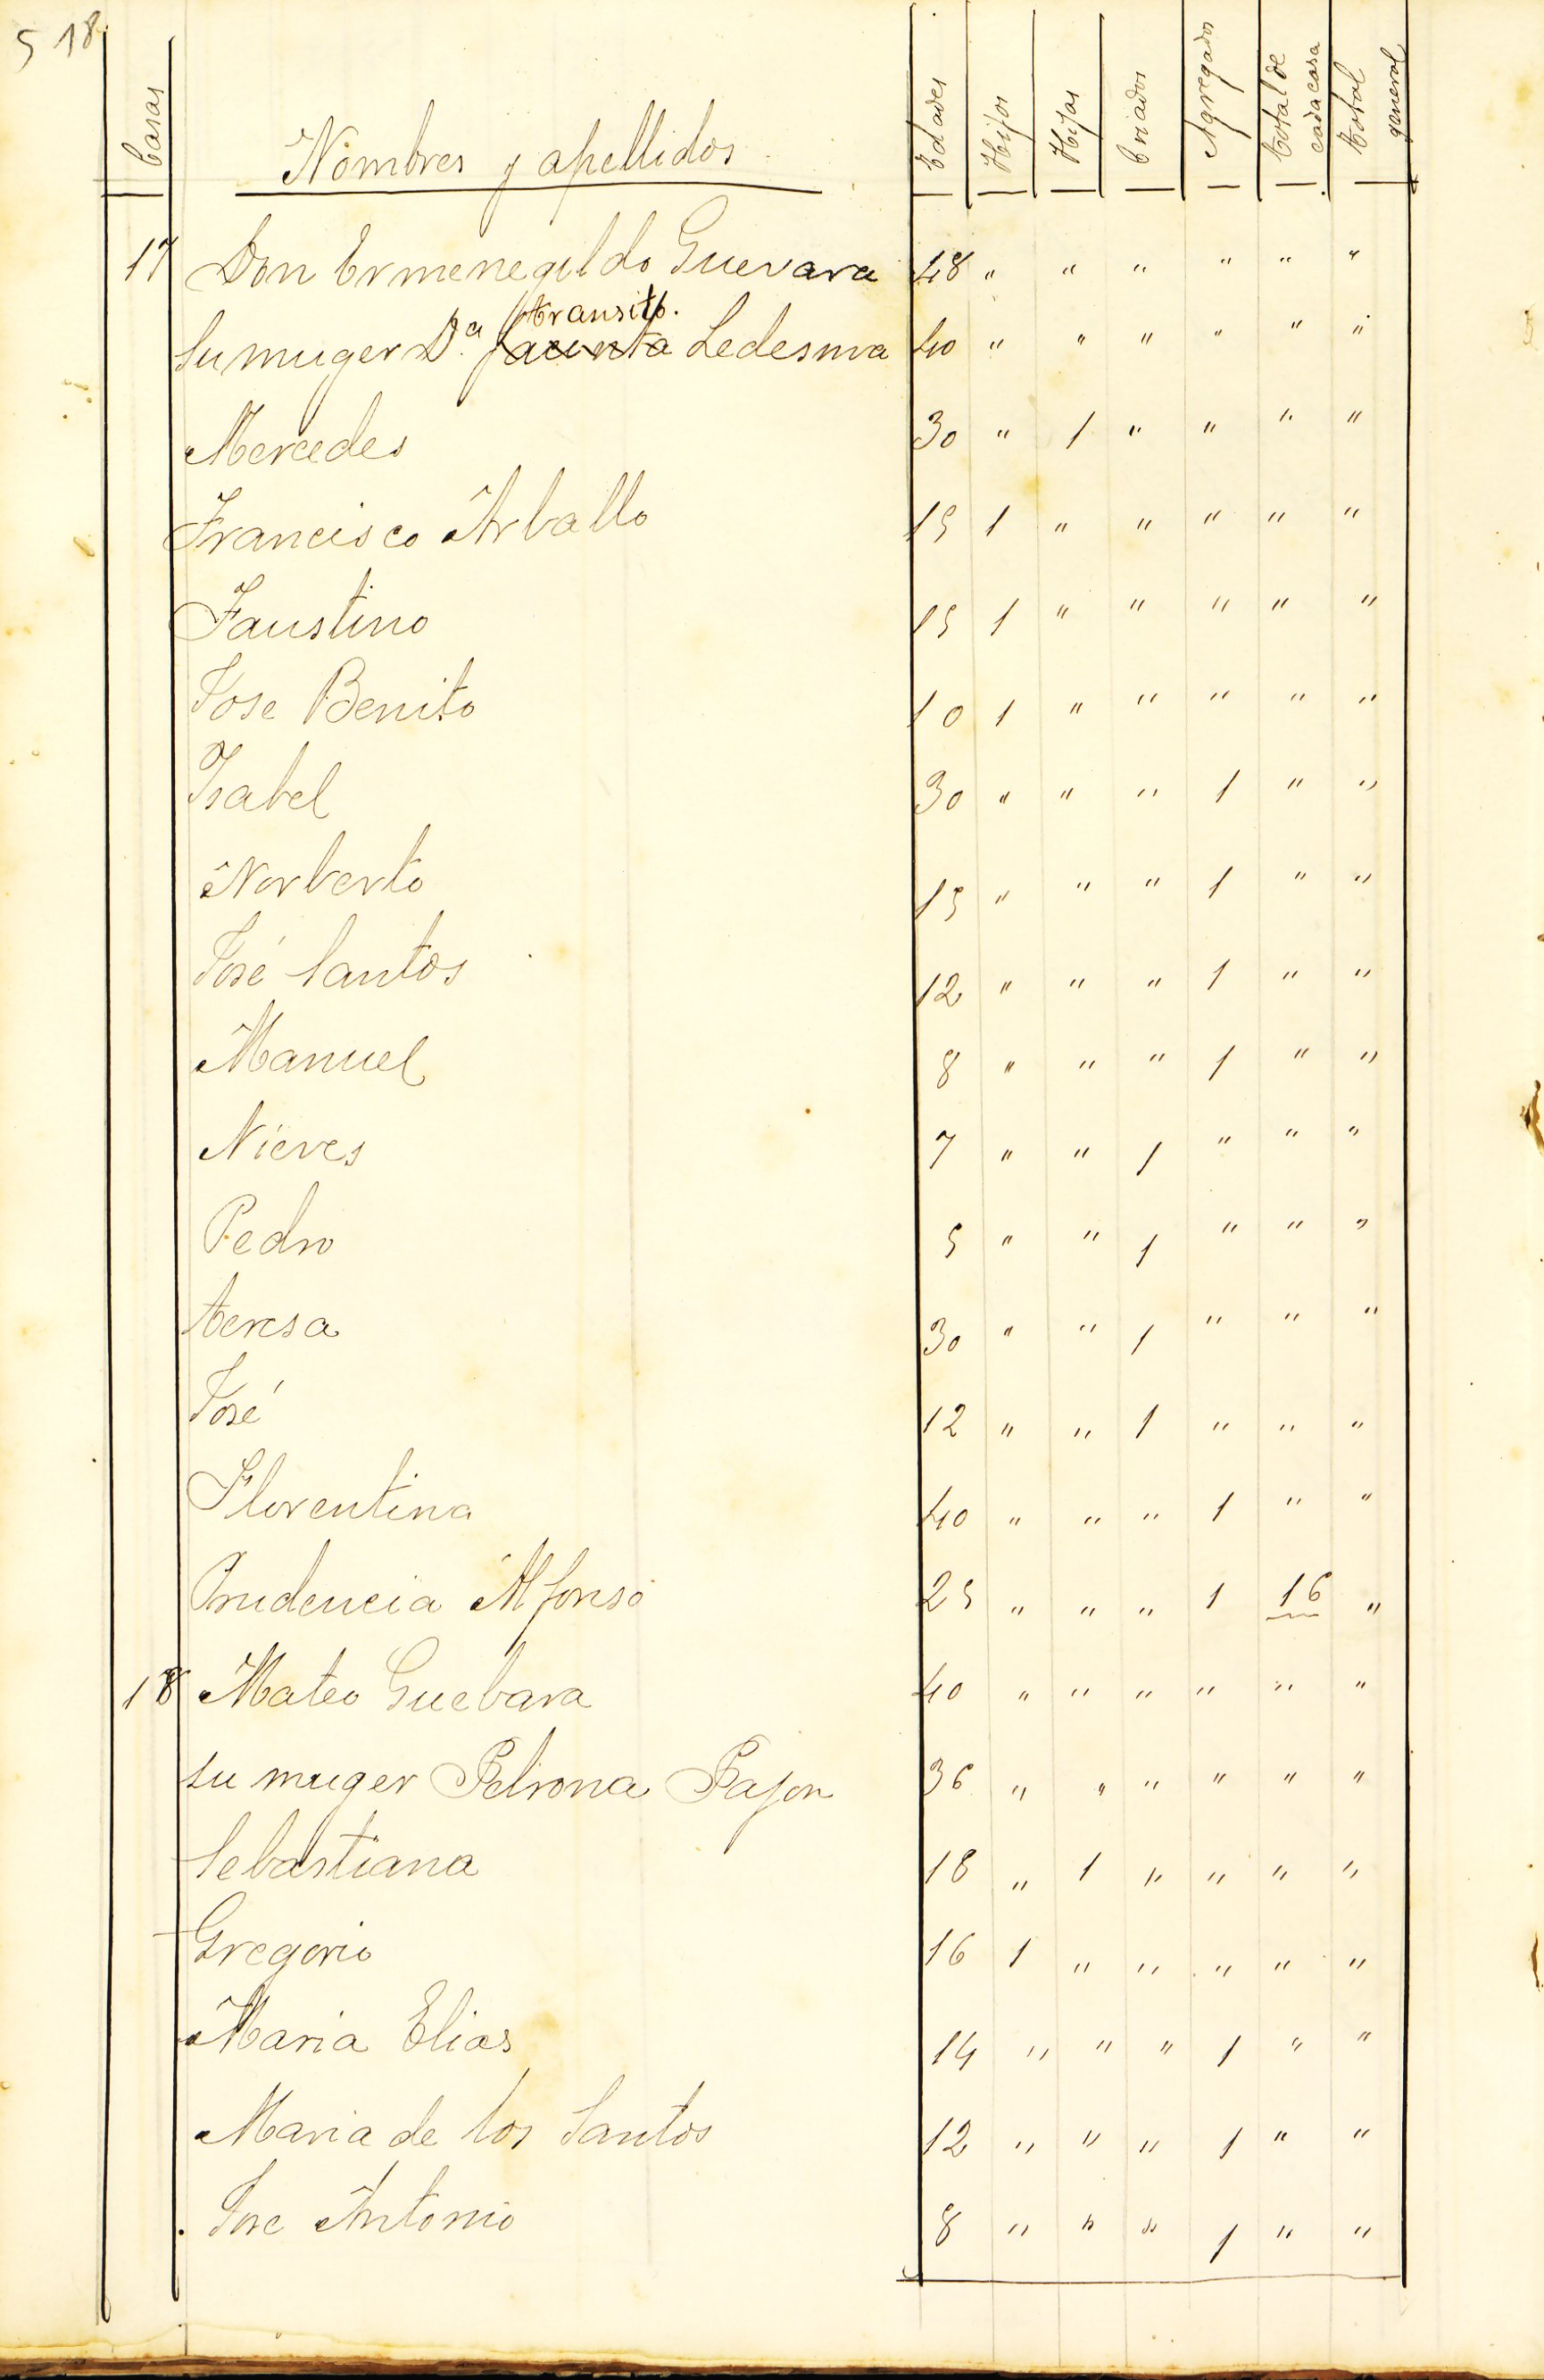 5 18
Casas Nombres y apellidos Edades Hijos Hijas Criados Agregados Total de cada casa Total general
17 Don Ermenegildo Guevara 48 " " " " " "
transito.
Su muger D.a Jacinta Ledesma 40 " " " " " "
Mercedes 30 " 1 " " " "
Francisco Arballo 15 1 " " " " "
Faustino 15 1 " " " " "
Jose Benito 10 1 " " " " "
Isabel 30 " " " 1 " "
Norberto 15 " " " 1 " "
José Santos 12 " " " 1 " "
Manuel 8 " " " 1 " "
Nieves 7 " " 1 " " "
Pedro 5 " " 1 " " "
Teresa 30 " " 1 " " "
José 12 " " 1 " " "
Florentina 40 " " " 1 " "
Prudencia Alfonso 25 " " " 1 16 "
18 Mateo Guebara 40 " " " " " "
su muger Petrona Pajon 36 " " " " " "
Sebastiana 18 " 1 " " " "
Gregorio 16 1 " " " " "
Maria Elias 14 " " " 1 " "
Maria de los Santos 12 " " " 1 " "
Jose Antonio 8 " " " 1 " "